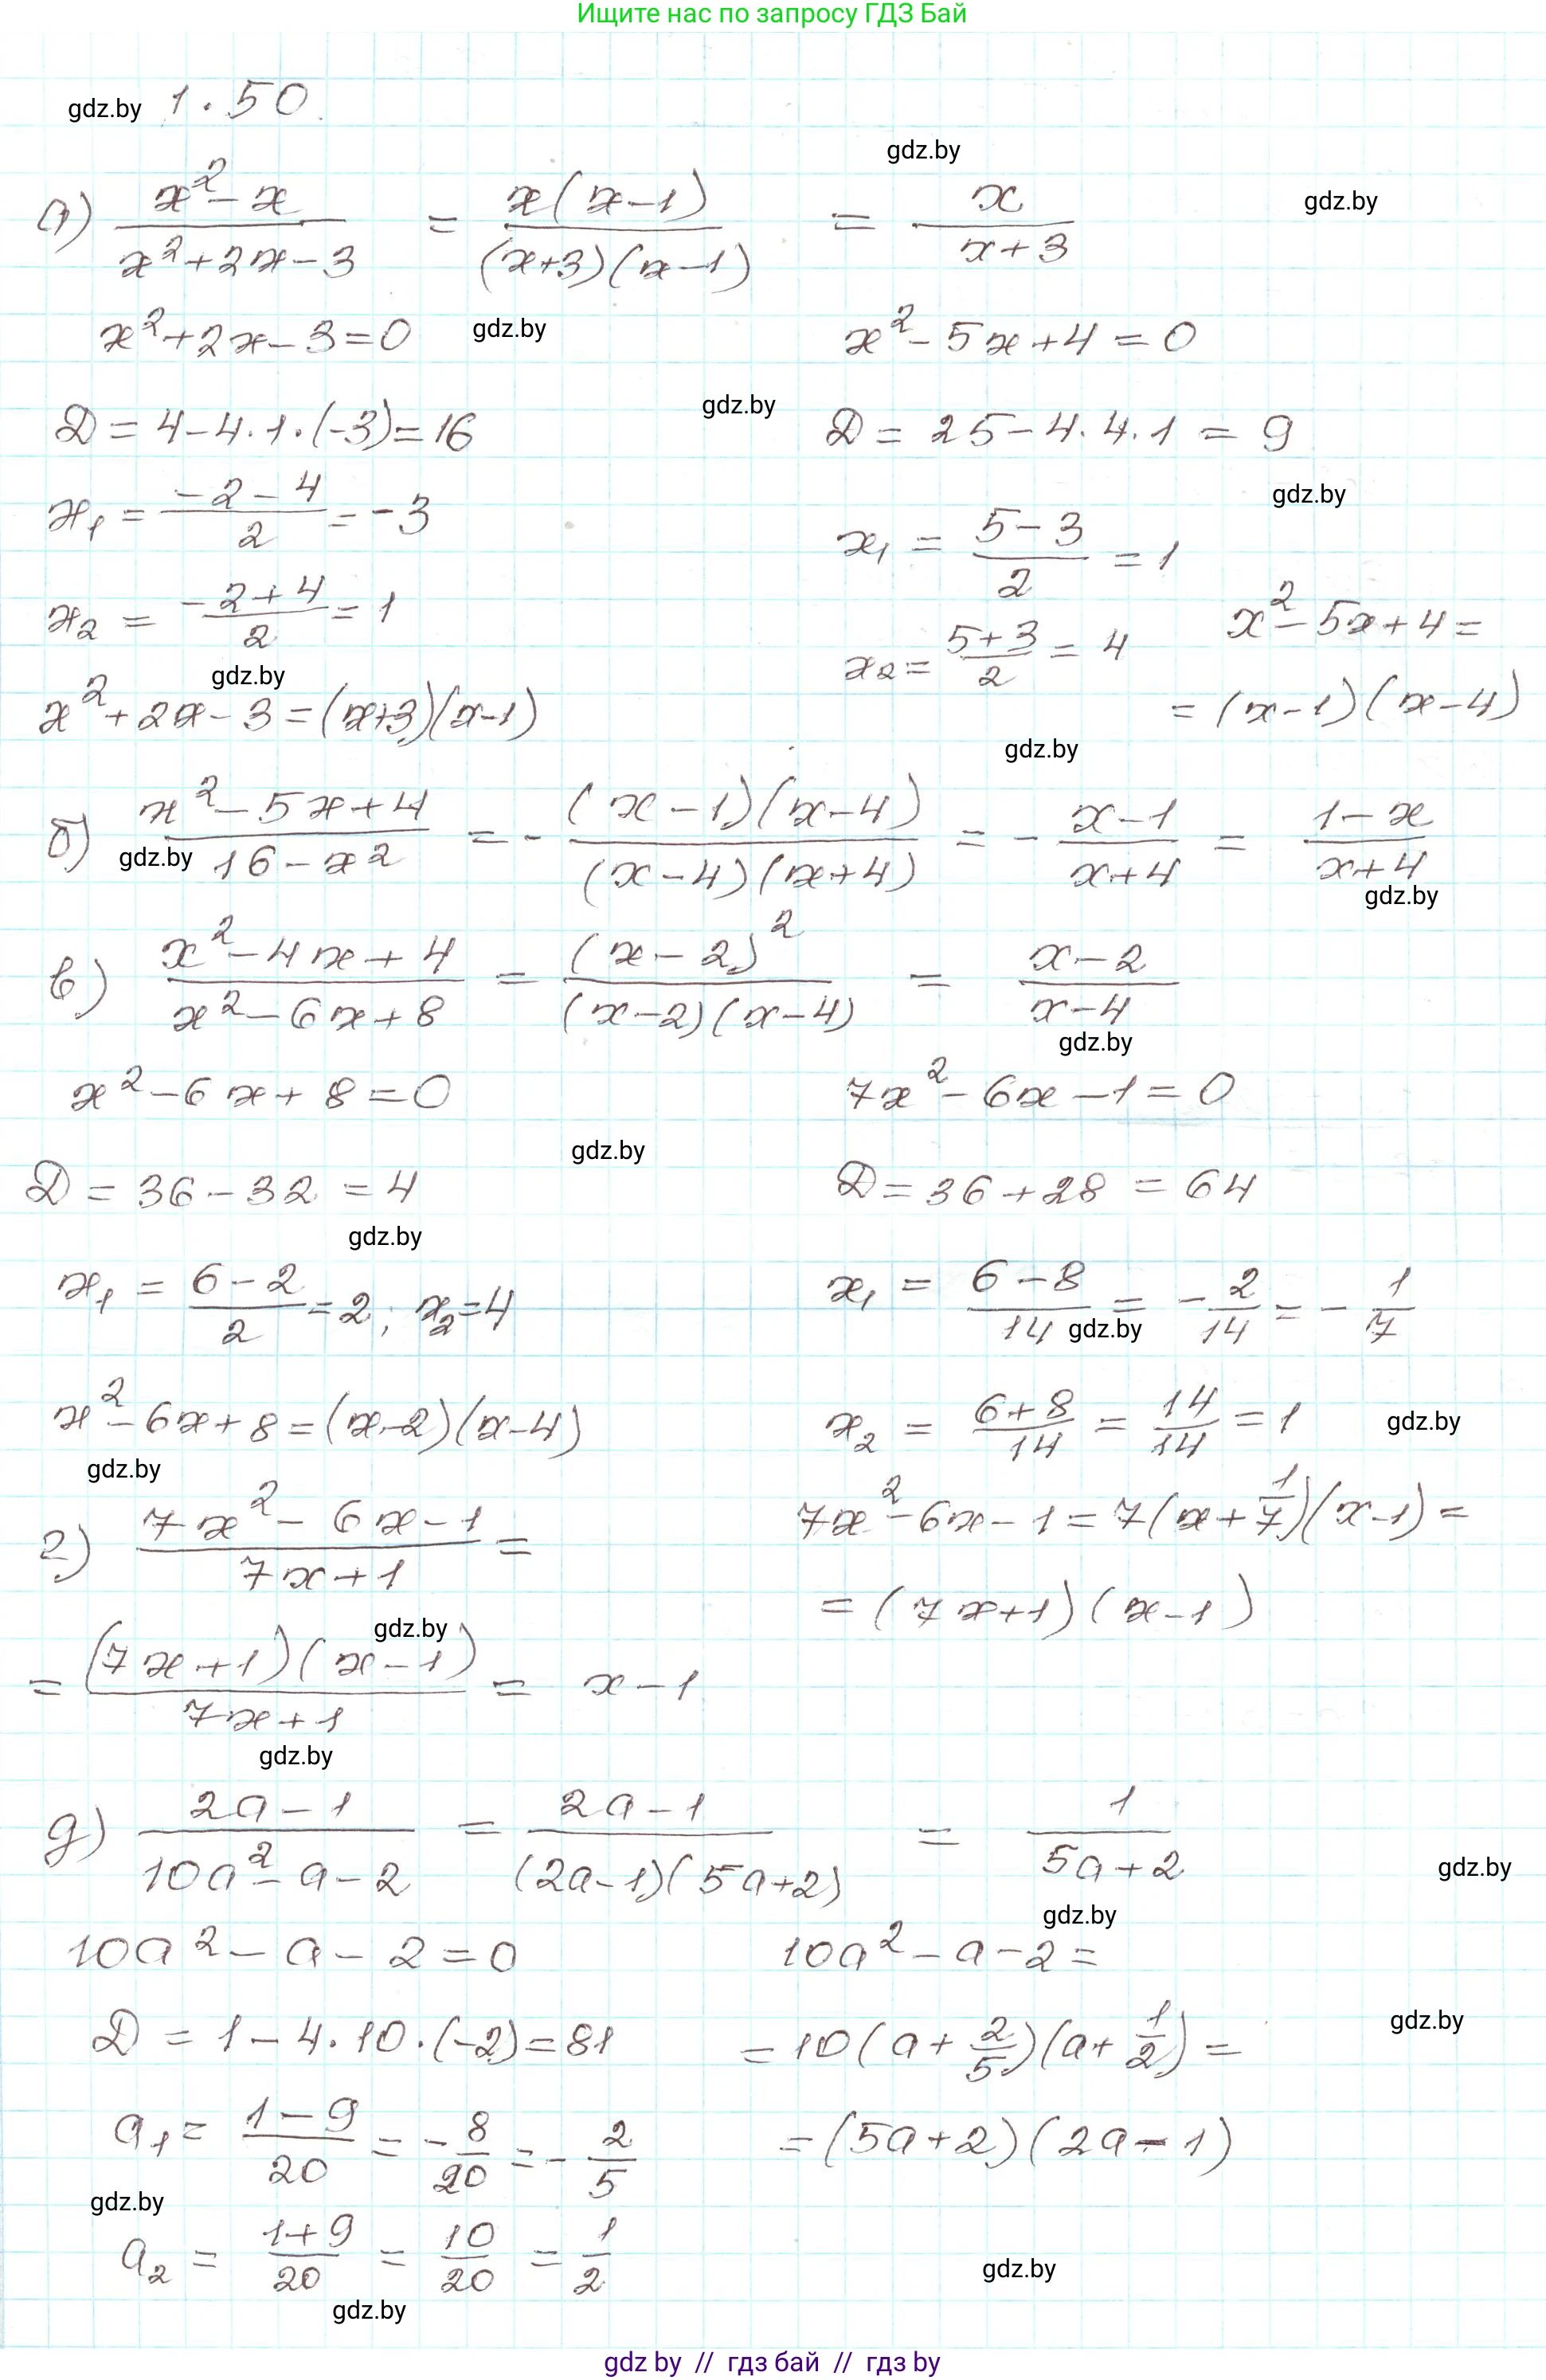 Ищите нас по запросу ГДЗ Бай
gdz.by 1.50.
gdz.by
gdz.by
а) (x² - x)/(x² + 2x - 3) = x(x-1)/((x+3)(x-1)) = x/(x+3)
x² + 2x - 3 = 0 gdz.by x² - 5x + 4 = 0
gdz.by
D = 4 - 4·1·(-3) = 16 D = 25 - 4·4·1 = 9
gdz.by
x₁ = (-2-4)/2 = -3 x₁ = (5-3)/2 = 1
x₂ = (-2+4)/2 = 1 x₂ = (5+3)/2 = 4 x² - 5x + 4 =
gdz.by
x² + 2x - 3 = (x+3)(x-1) = (x-1)(x-4)
gdz.by
б) (x² - 5x + 4)/(16 - x²) = - (x-1)(x-4)/((x-4)(x+4)) = - (x-1)/(x+4) = (1-x)/(x+4)
gdz.by
gdz.by
в) (x² - 4x + 4)/(x² - 6x + 8) = (x-2)²/((x-2)(x-4)) = (x-2)/(x-4)
gdz.by
x² - 6x + 8 = 0 7x² - 6x - 1 = 0
gdz.by
D = 36 - 32 = 4 D = 36 + 28 = 64
gdz.by
x₁ = (6-2)/2 = 2; x₂ = 4 x₁ = (6-8)/14 = - 2/14 = - 1/7
gdz.by
x² - 6x + 8 = (x-2)(x-4) x₂ = (6+8)/14 = 14/14 = 1 gdz.by
gdz.by
г) (7x² - 6x - 1)/(7x + 1) = 7x² - 6x - 1 = 7(x + 1/7)(x-1) =
= (7x+1)(x-1)
gdz.by
= (7x+1)(x-1)/(7x+1) = x - 1
gdz.by
д) (2a-1)/(10a² - a - 2) = (2a-1)/((2a-1)(5a+2)) = 1/(5a+2)
gdz.by
gdz.by
10a² - a - 2 = 0 10a² - a - 2 =
gdz.by
D = 1 - 4·10·(-2) = 81 = 10(a + 2/5)(a + 1/2) =
a₁ = (1-9)/20 = - 8/20 = - 2/5 = (5a+2)(2a-1)
gdz.by
a₂ = (1+9)/20 = 10/20 = 1/2
gdz.by
gdz.by
gdz by // гдз бай // гдз by